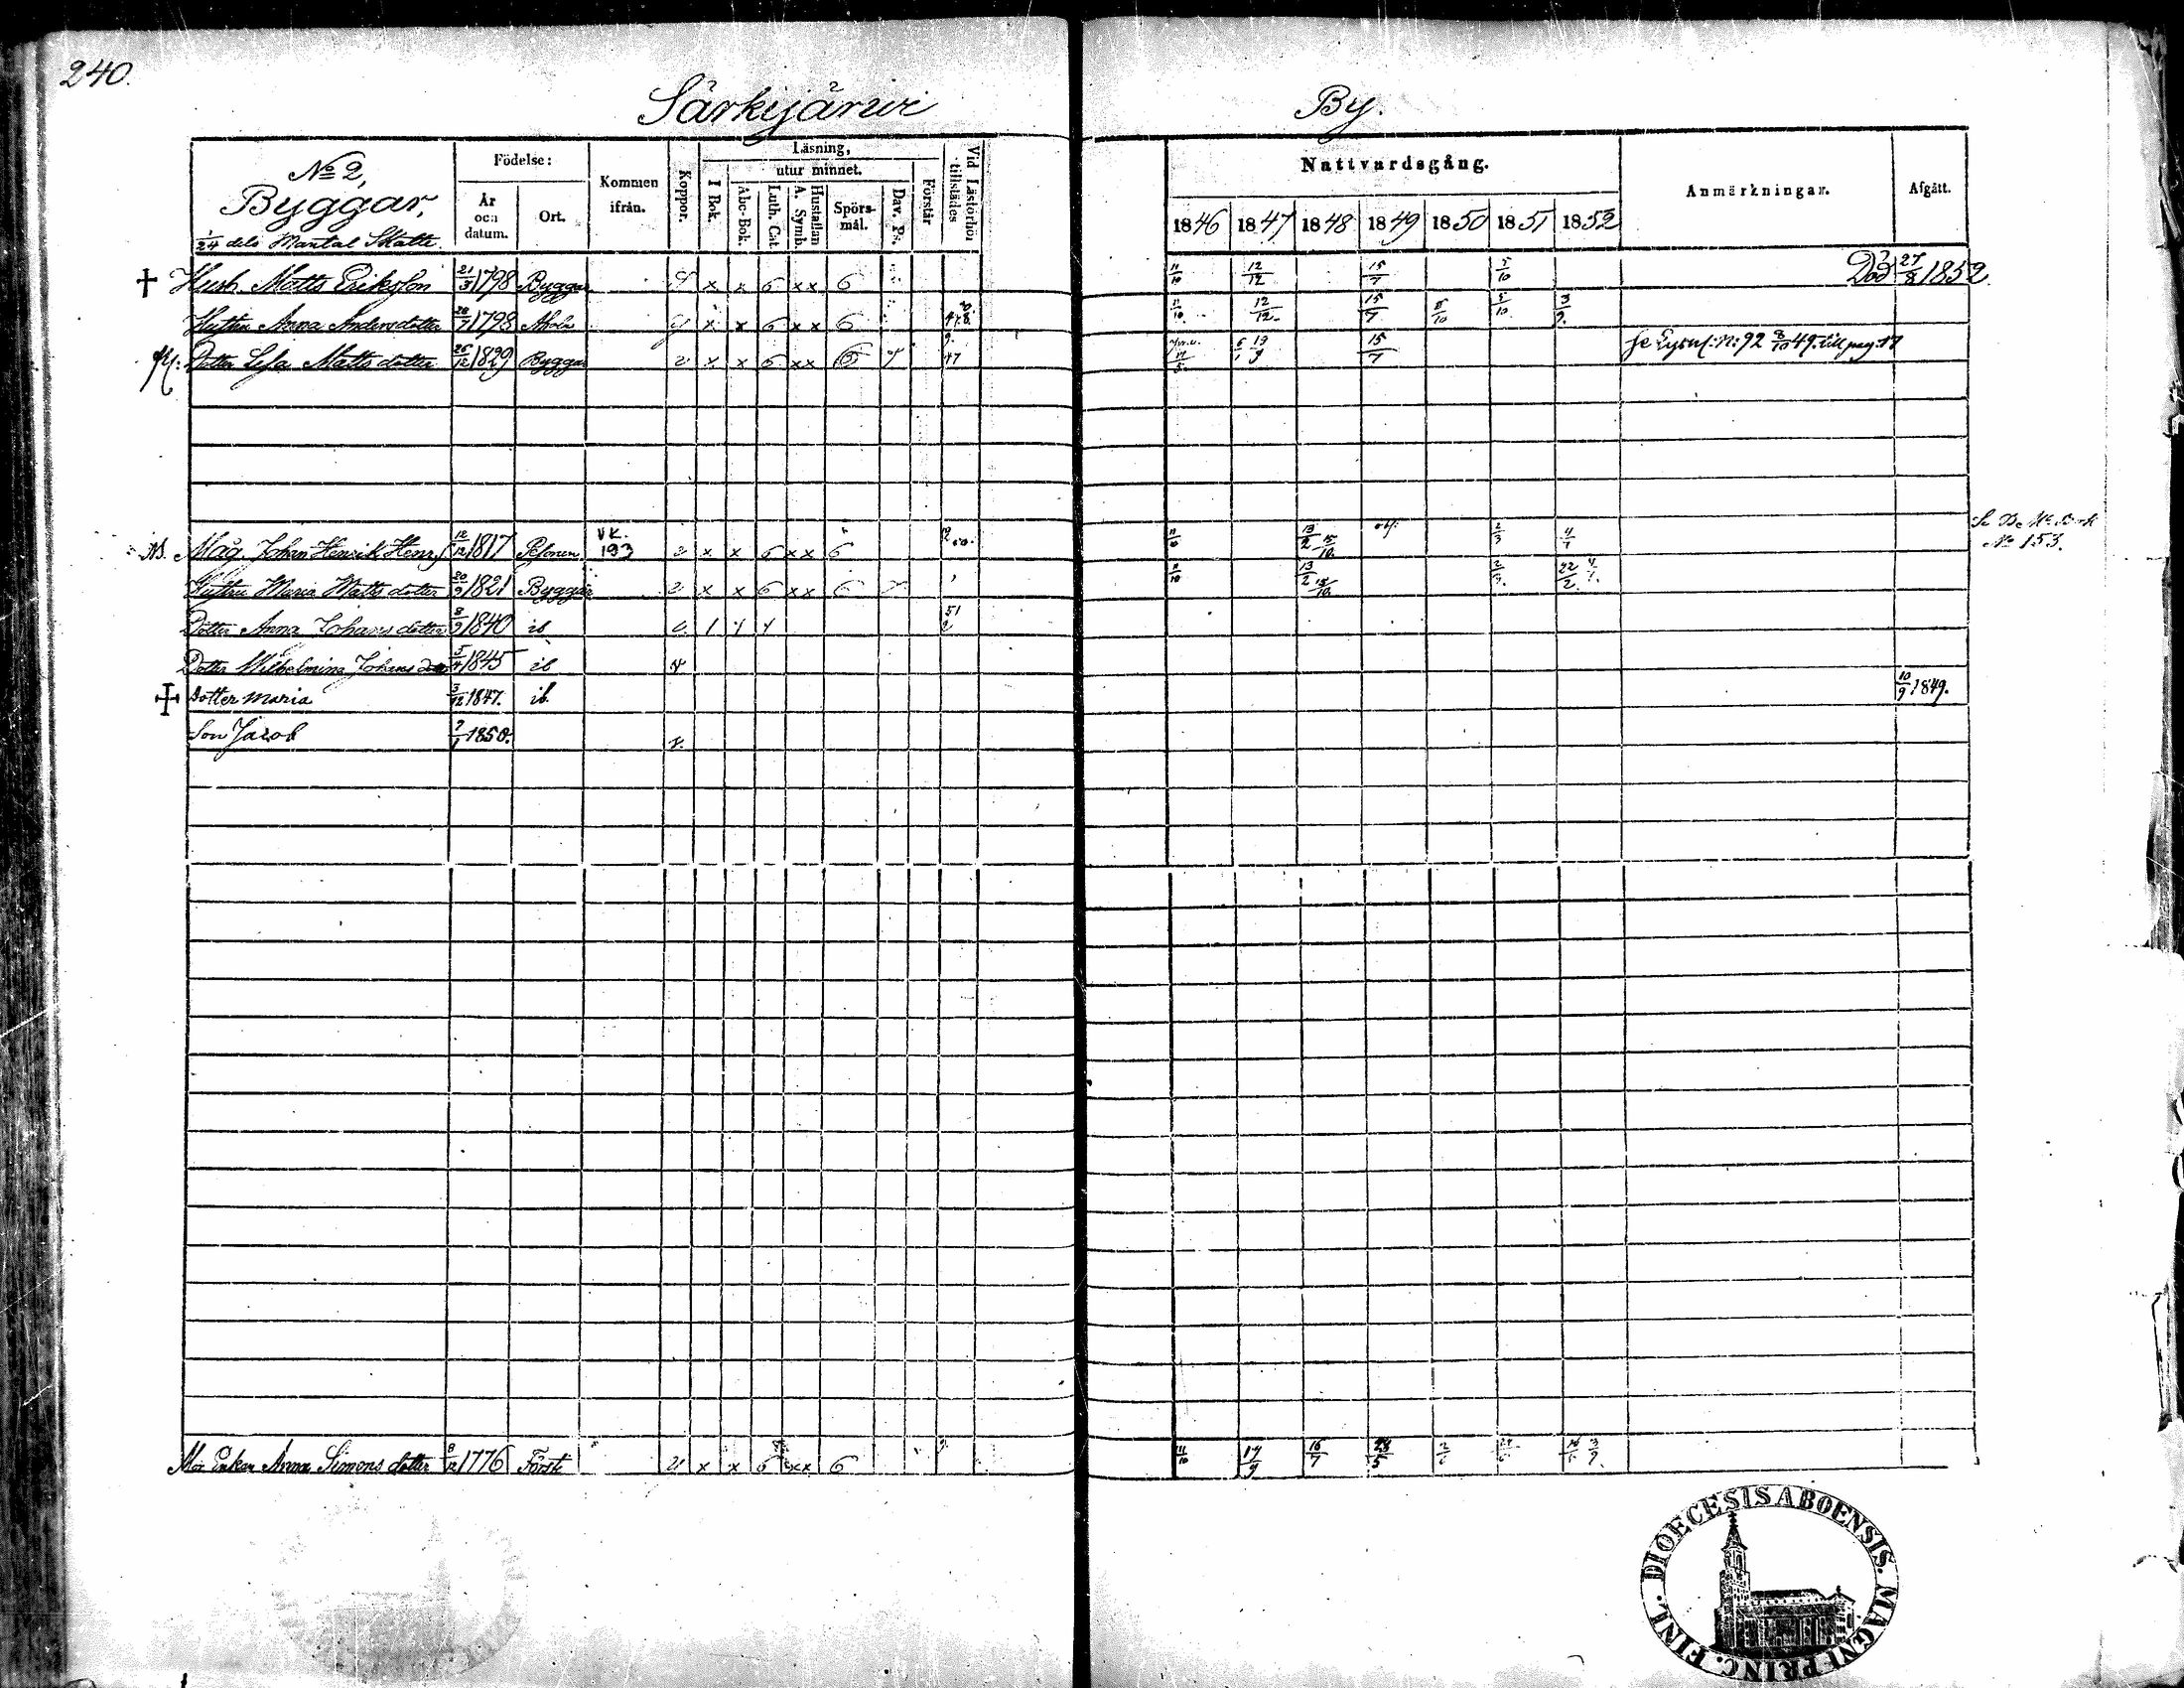 240.
Särkijärwi By.
No 2,
Byggar,
1/24 dels Mantal Skatte.
Födelse:
År och datum.
Ort.
Kommen ifrån.
Koppor.
Läsning,
I Bok.
utur minnet.
Abc-Bok.
Luth. Cat.
Hustaflan A. Symb.
Spörsmål.
Dav. Ps.
Förstår
Vid Läsförhör tillstädes
Nattvardsgång.
1846 1847 1848 1849 1850 1851 1852
Anmärkningar.
Afgått.
† Husb. Matts Eriksson 21/3 1798 Byggar x x 6 xx 6 11/10 12/12 15/7 5/10 Död 27/8 1852.
Hustru Anna Andersdotter 1798 x x 6 xx 6 11/10 12/12 15/7 8/10 5/10 3/9.
Dotter Lisa Matts dotter 26/12 1829 Byggar v x x 6 xx 6 47 6/1 19/9 15/7 92 8/10 49. till pag. 17
Måg. Johan Henrik Henr. 12/12 1817 VK. 193 v x x 6 xx 6 11/10 13/2 15/10. 2/3 4/7
No 153.
Hustru Maria Matts dotter 20/9 1821 Byggar v x x 6 xx 6 11/10 13/2 15/10. 2/3. 22/2.
Dotter Anna Johans dotter 8/9 1840 ib 51
Dotter Wilhelmina Johans dotter 5/4 1845 ib
Dotter Maria 3/12 1847. ib. 10/9 1849.
Son Jacob 7/1 1850.
Mor Enkan Anna Simons dotter 8/12 1776 Förste x x 6 xx 6 11/10 19/9 16/7
DIOECESIS ABOENSIS. MAGNI PRINC. FINL.